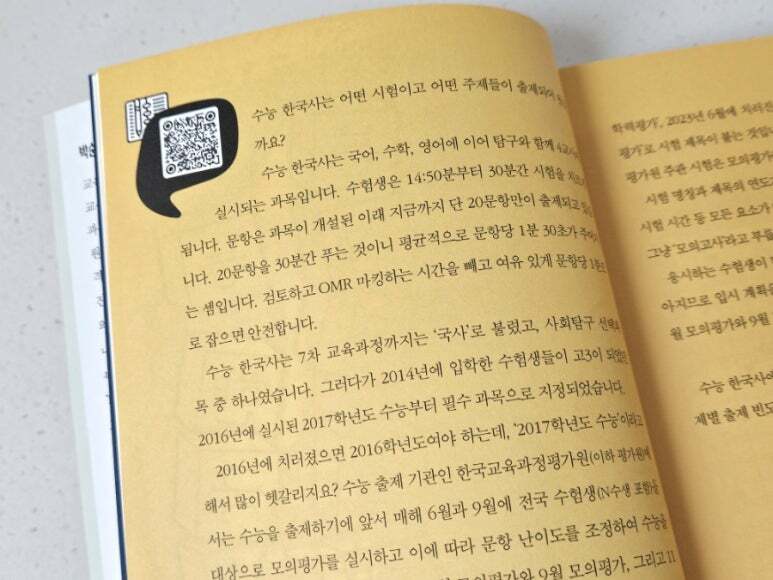 수능 한국사는 어떤 시험이고 어떤 주제들이 출제되어
까요?
수능 한국사는 국어, 수학, 영어에 이어 탐구와 함께 4교시에
실시되는 과목입니다. 수험생은 14:50분부터 30분간 시험을
됩니다. 문항은 과목이 개설된 이래 지금까지 단 20문항만이 출제되고
니다. 20문항을 30분간 푸는 것이니 평균적으로 문항당 1분 30초가
는 셈입니다. 검토하고 OMR 마킹하는 시간을 빼고 여유 있게 문항당 1분
로 잡으면 안전합니다.
수능 한국사는 7차 교육과정까지는 '국사'로 불렸고, 사회탐구 선택
목 중 하나였습니다. 그러다가 2014년에 입학한 수험생들이 고3이 되었던
2016년에 실시된 2017학년도 수능부터 필수 과목으로 지정되었습니다.
2016년에 치러졌으면 2016학년도여야 하는데, '2017학년도 수능'이라고
해서 많이 헷갈리지요? 수능 출제 기관인 한국교육과정평가원(이하 평가원)에
서는 수능을 출제하기에 앞서 매해 6월과 9월에 전국 수험생(N수생 포함)을
대상으로 모의평가를 실시하고 이에 따라 문항 난이도를 조정하여 수능을
모의평가와 9월 모의평가, 그리고 11
학력평가', 2023년 6월에 치러진
평가'로 시험 제목이 붙는 것입니
평가원 주관 시험은 모의평가
시험 명칭과 제목의 연도
시험 시간 등 모든 요소가
그냥 '모의고사'라고 부를
응시하는 수험생이
아지므로 입시 계획을
월 모의평가와 9월
수능 한국사에
제별 출제 빈도